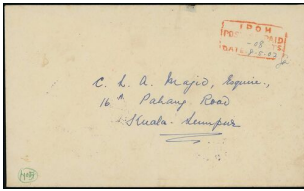 IPOH
POSTAGE PAID
-08
DATE
C. L. A. Majid, Esquire,
16A Pahang Road
Kuala-Lumpur